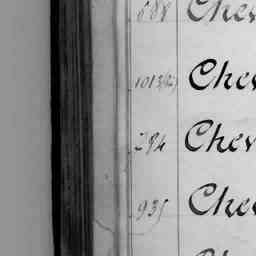 688 Chev
1013(2) Chev
284 Chev
935 Chev